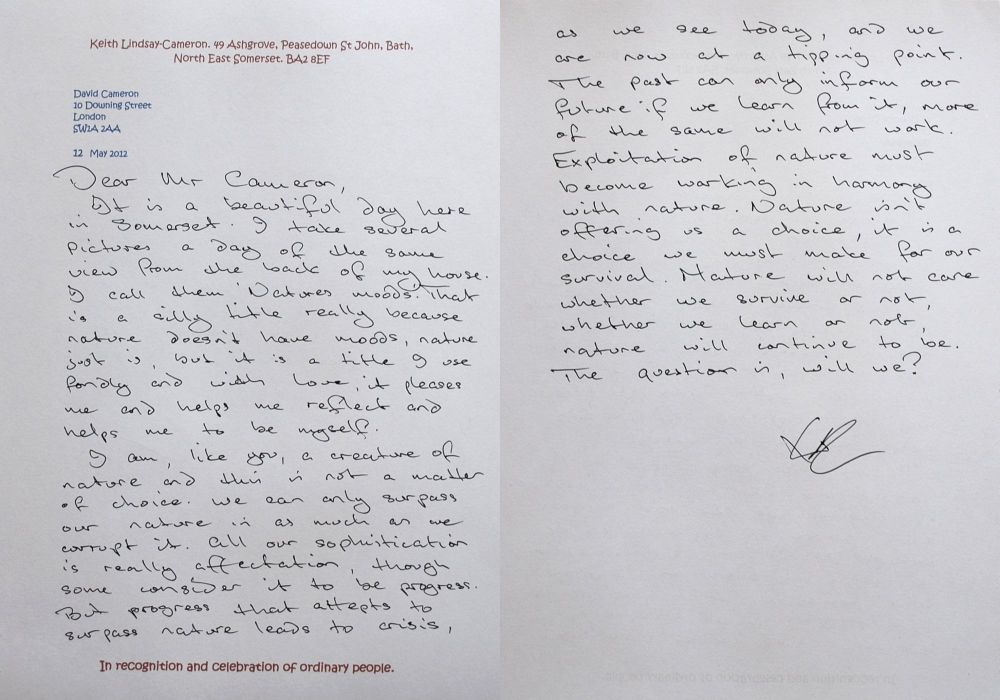 Keith Lindsay-Cameron. 49 Ashgrove, Peasedown St John, Bath,
North East Somerset. BA2 8EF
David Cameron
10 Downing Street
London
SW1A 2AA
12 May 2012
Dear Mr Cameron,
It is a beautiful day here
in Somerset. I take several
pictures a day of the same
view from the back of my house.
I call them 'Natures moods'. That
is a silly title really because
nature doesn't have moods, nature
just is, but it is a title I use
fondly and with love, it pleases
me and helps me reflect and
helps me to be myself.
I am, like you, a creature of
nature and this is not a matter
of choice. We can only surpass
our nature in as much as we
corrupt it. All our sophistication
is really affectation, though
some consider it to be progress.
But progress that attepts to
surpass nature leads to crisis,
In recognition and celebration of ordinary people.
as we see today, and we
are now at a tipping point.
The past can only inform our
future if we learn from it, more
of the same will not work.
Exploitation of nature must
become working in harmony
with nature. Nature isn't
offering us a choice, it is a
choice we must make for our
survival. Nature will not care
whether we survive or not,
whether we learn or not,
nature will continue to be.
The question is, will we?